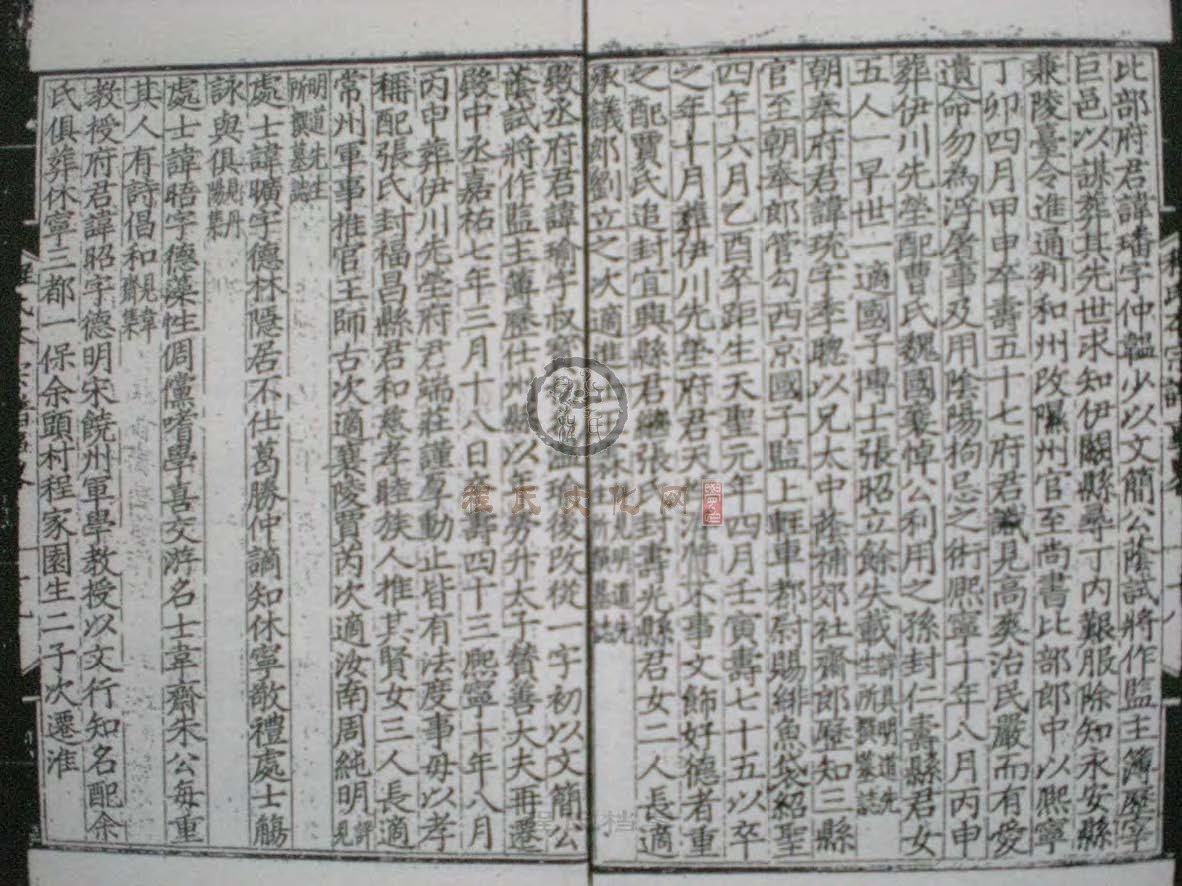 比部府君諱璠字仲韞少以文簡公蔭試將作監主簿歷宰
巨邑以謀葬其先世求知伊闕縣尋丁內艱服除知永安縣
兼陵臺令進通判和州改隰州官至尚書比部郎中以熙寧
丁卯四月甲申卒壽五十七府君識見高爽治民嚴而有愛
遺命勿為浮屠事及用陰陽拘忌之術熙寧十年八月丙申
葬伊川先塋配曹氏魏國襄悼公利用之孫封仁壽縣君女
五人一早世一適國子博士張昭立餘失載詳見明道先生所撰墓誌
朝奉府君諱珫字季聰以兄太中蔭補郊社齋郎歷知三縣
官至朝奉郎管勾西京國子監上輕車都尉賜緋魚袋紹聖
四年六月乙酉卒距生天聖元年四月壬寅壽七十五以卒
之年十月葬伊川先塋府君天 不事文飾好德者重
之配賈氏追封宜興縣君繼張氏封壽光縣君女二人長適
承議郎劉立之次適進士 見明道先 所撰墓誌
殿丞府君諱瑜字叔寶 瑜後改從一字初以文簡公
蔭試將作監主簿歷仕州縣以年勞升太子贊善大夫再遷
殿中丞嘉祐七年三月十八日卒壽四十三熙寧十年八月
丙申葬伊川先塋府君端莊謹 動止皆有法度事母以孝
稱配張氏封福昌縣君和慈孝睦族人推其賢女三人長適
常州軍事推官王師古次適襄陵賈芮次適汝南周純明詳見
明道先生所撰墓誌
處士諱曠字德林隱居不仕葛勝仲謫知休寧敬禮處士觴
詠與俱見丹陽集
處士諱晤字德藻性倜儻嗜學喜文游名士韋齋朱公每重
其人有詩倡和見韋齋集
教授府君諱昭字德明宋饒州軍學教授以文行知名配余
氏俱葬休寧三都一保余頭村程家園生二子次遷淮
程氏文化网